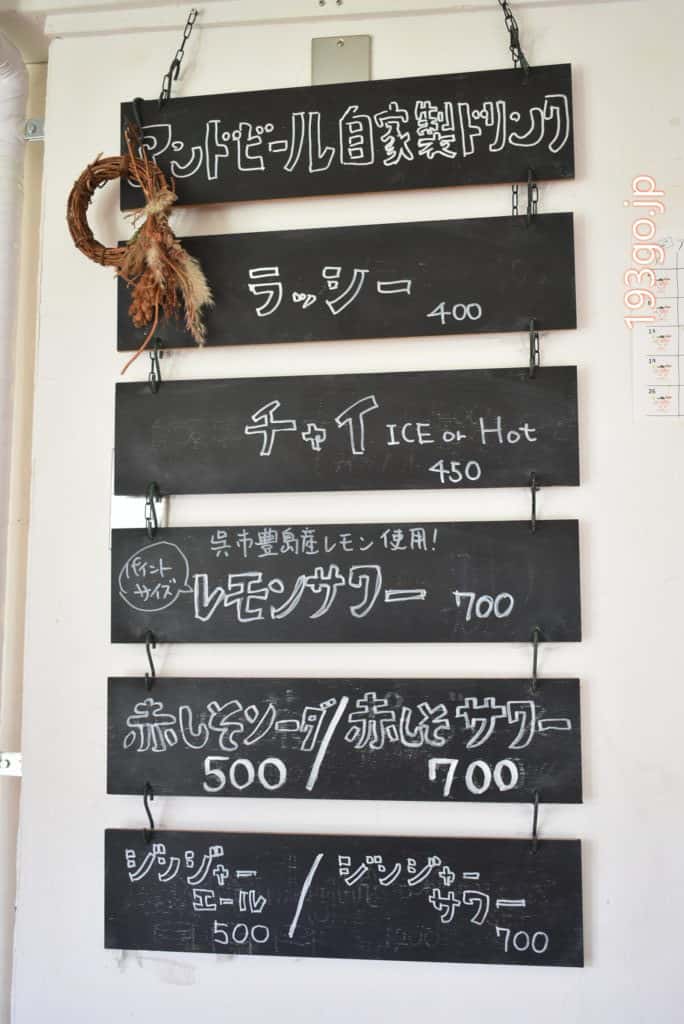 アンドビール自家製ドリンク
ラッシー
400
チャイ ICE or Hot
450
呉市豊島産レモン使用!
パイント
サイズ
レモンサワー 700
赤しそソーダ/赤しそサワー
500 700
ジンジャー
エール
500
/
ジンジャー
サワー
700
193go.jp